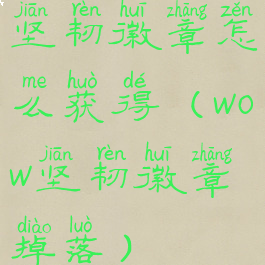 jiān rèn huī zhāng zěn
坚韧徽章怎
me huò dé
么获得（wo
jiān rèn huī zhāng
w坚韧徽章
diào luò
掉落）